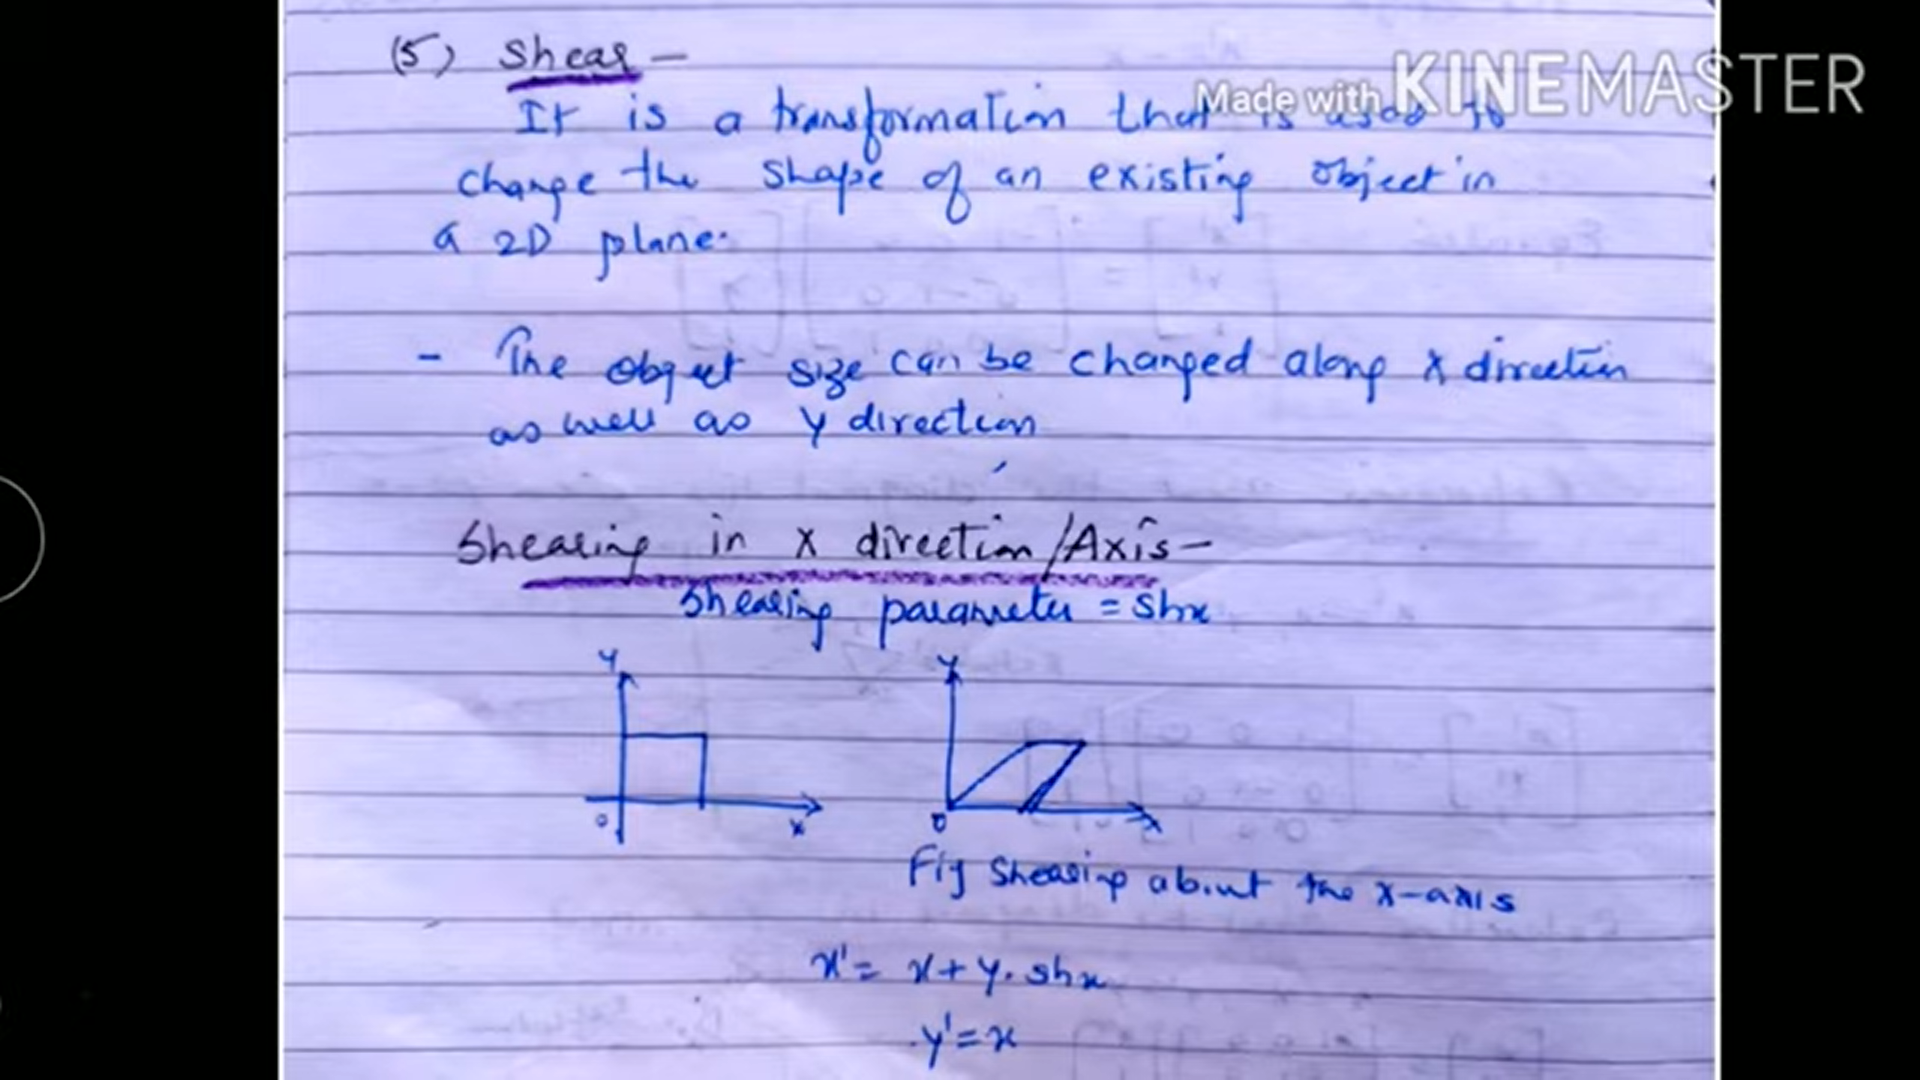 (5) Shear –
Made with KINEMASTER
It is a transformation that is used to
change the shape of an existing object in
a 2D plane.
- The object size can be changed along X direction
as well as Y direction
Shearing in X direction/Axis –
Shearing parameter = Shx
Y
Y
0
x
0
X
Fig Shearing about the X-axis
x' = x + y. shx
y' = x